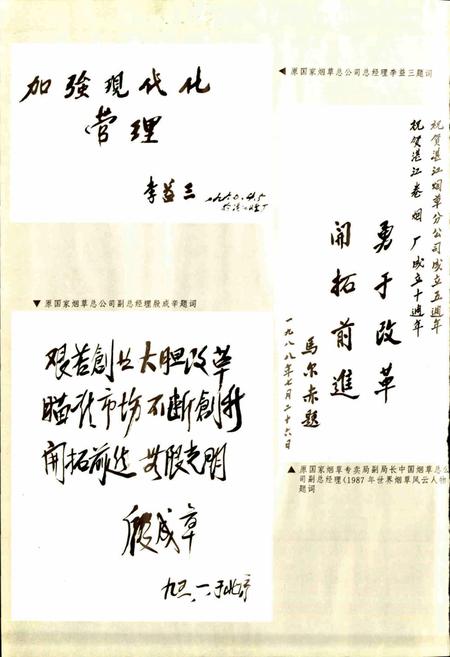 加強現代化
管理
李益三
◀ 原国家烟草总公司总经理李益三题词
祝贺湛江烟草分公司成立五週年
祝贺湛江卷烟厂成立十週年
勇于改革
開拓前進
馬尔赤題
一九八八年七月二十六日
▲ 原国家烟草专卖局副局长中国烟草总公
司副总经理(1987年世界烟草风云人物
题词
▼ 原国家烟草总公司副总经理殷成辛题词
艰苦創业大胆改革
瞄准市场不断創新
開拓前进
光明
殷成章